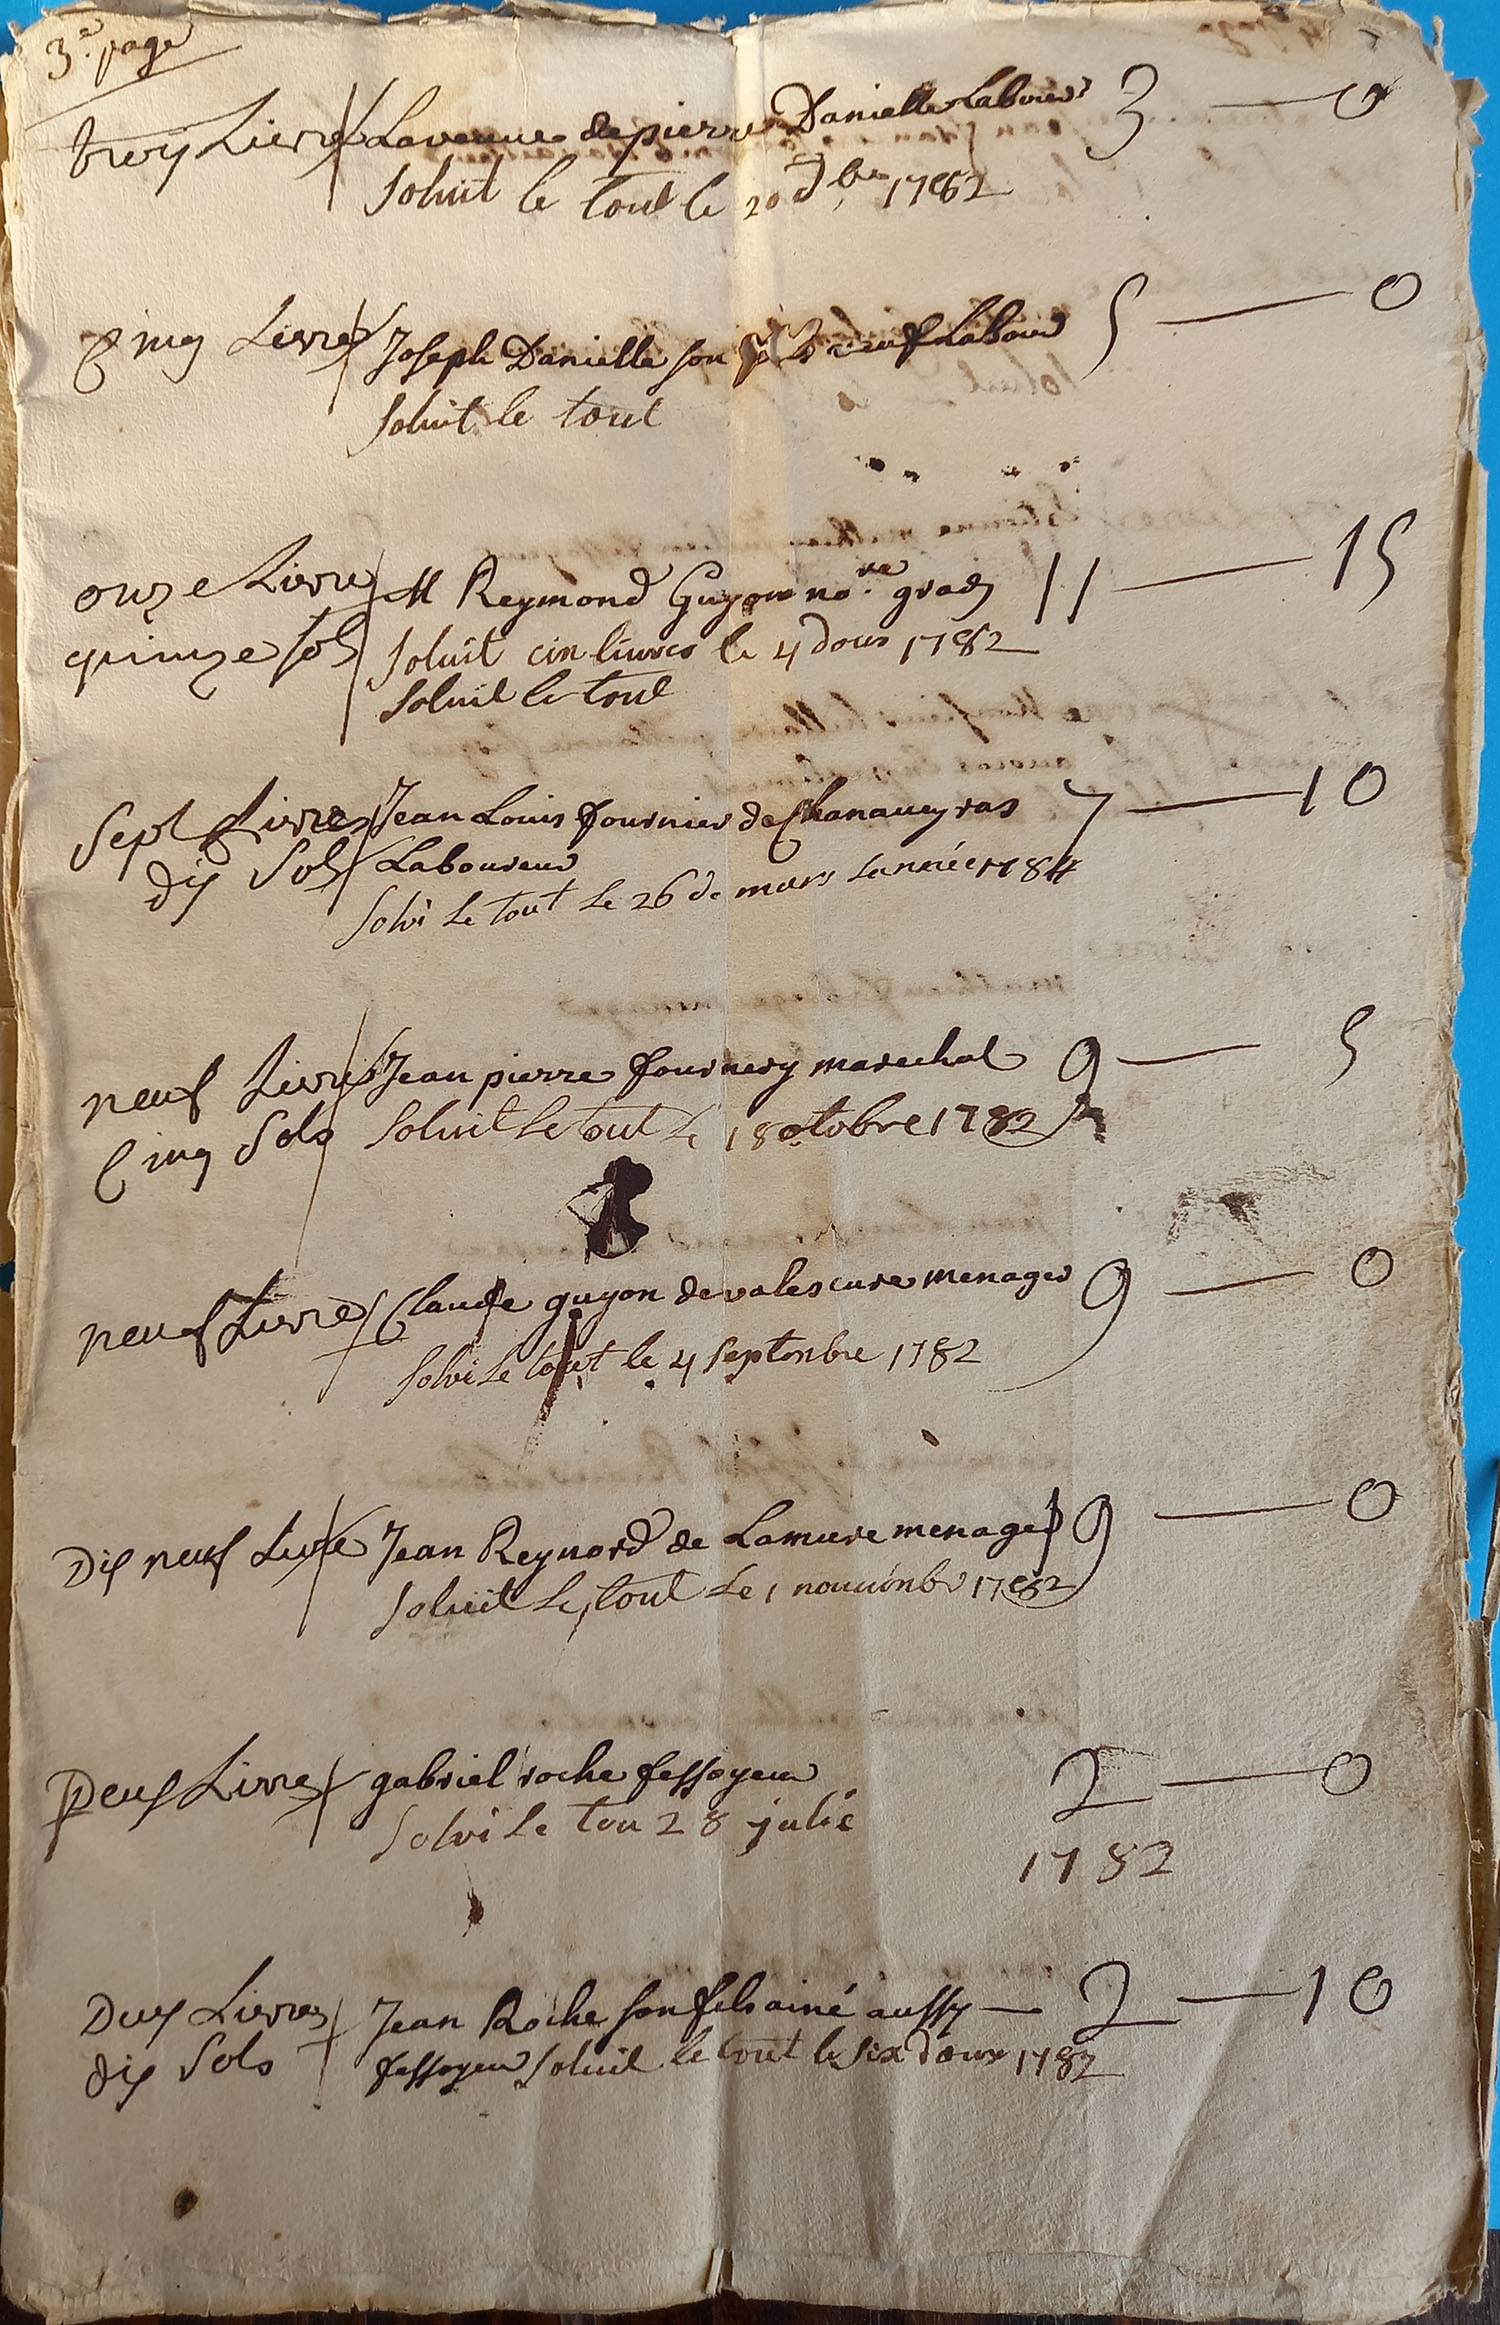 3e. page
troy Livres La veuve de pierre Danielle Labour.r 3 — 0
Soluit le tout le 20 d bre 1782
Cinq Livres Joseph Danielle son fils veuf Labour 5 — 0
Soluit le tout
onze Livres M Reymond Guyon no.re grad 11 — 15
quinze sols Soluit cin liures le 4 dous 1782
Soluit le tout
Sept Livres Jean Louis fournier de Chanaveyras 7 — 10
dix Sols Laboureur
Solvi Le tout Le 26 de mars Lannée 1784
neuf Livres Jean pierre fournery marechal 9 — 5
Cinq Sols Soluit Le tout Le 18 otobre 1782
neuf Livres Claude guyon de valescure menager 9 — 0
Solvi Le tout le 4 Septenbre 1782
Dix neuf Livre Jean Reynord de Lamure menager 19 — 0
Soluit Le tout Le 1 nouuinbr 1782
Deux Livres gabriel roche fessoyeur 2 — 0
Solvi Le tou 28 julié 1782
Deux Livres Jean Roche son fils ainé aussy — 2 — 10
dix Sols fessoyeur Soluit le tout le six doux 1782